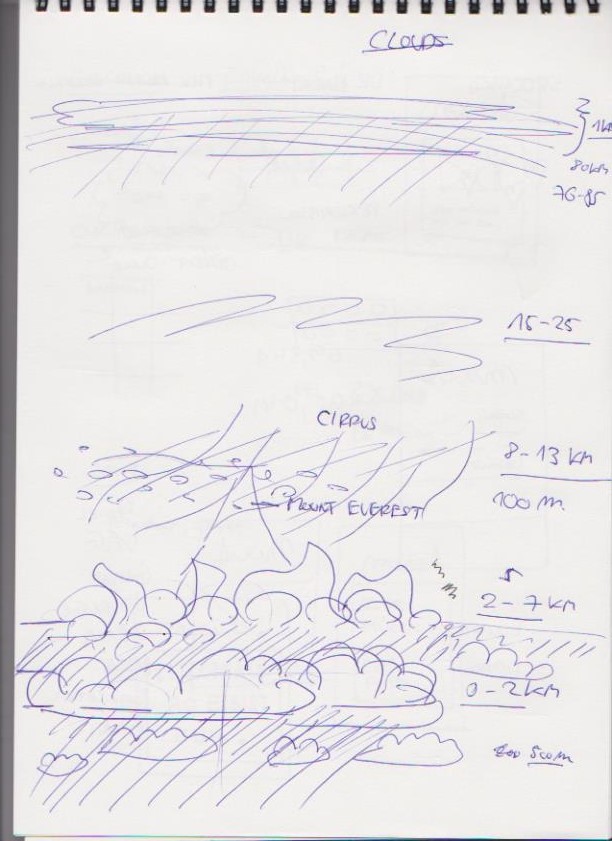 CLOUDS
1km
80km
76-85
15-25
CIRRUS
8-13 KM
MOUNT EVEREST
100 m
5
2-7 KM
0-2 KM
500m